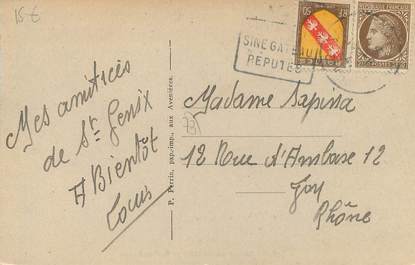 15€
SINE GATEAU
REPUTES
RF
50
Mes amitiés
de St Genix
A Bientôt
Louis
P. Perrin, pap.-imp., aux Avenières.
Madame Sapina
12 Rue d'Ambase 12
Rhône